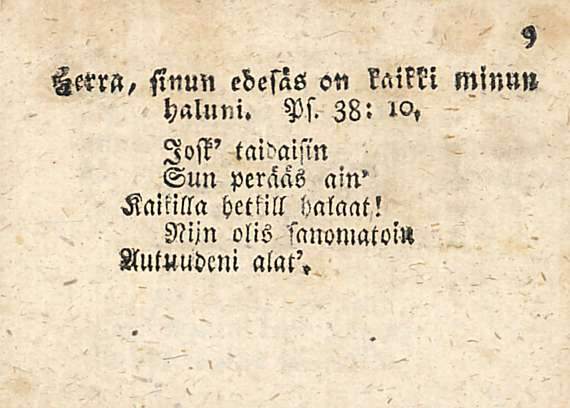 9
Herra, sinun edesäs on kaikki minun
haluni. Ps. 38: 10.
Josk' taidaisin
Sun perääs ain'
Kaikilla hetkill halaat!
Niin olis sanomatoin
Autuudeni alat'.